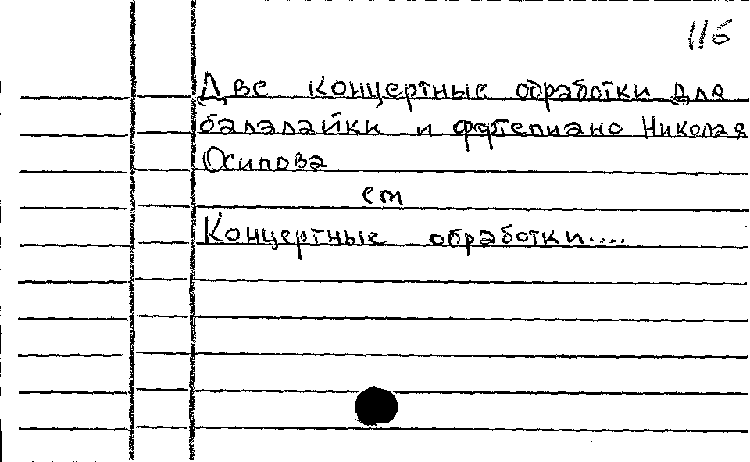 116
Две концертные обработки для
балалайки и фортепиано Николая
Осипова
см
Концертные обработки....